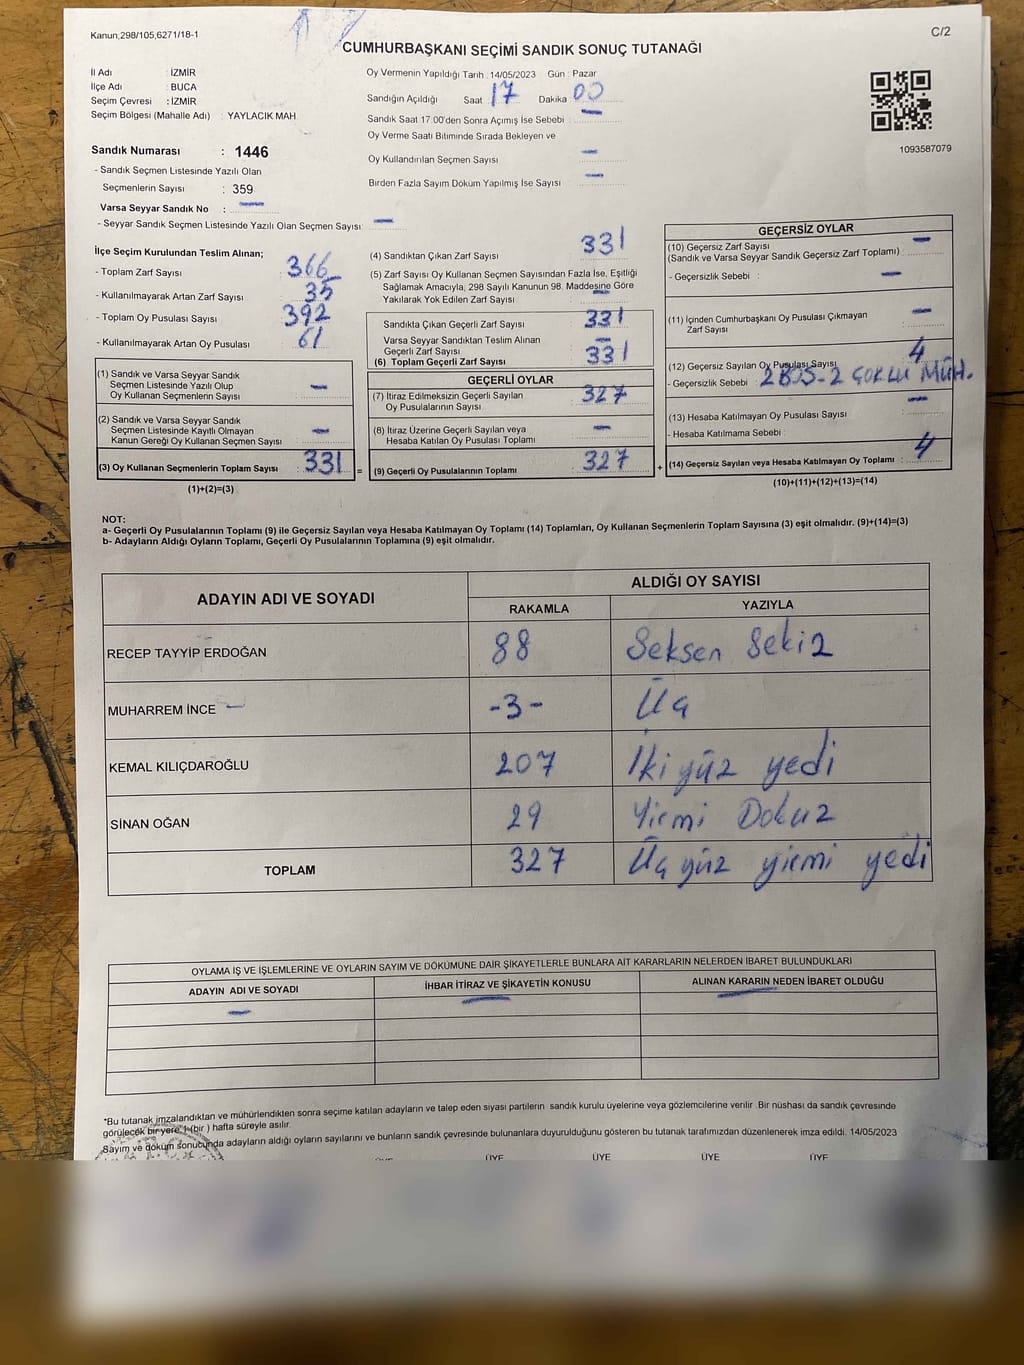 Kanun,298/105,6271/18-1
C/2
CUMHURBAŞKANI SEÇİMİ SANDIK SONUÇ TUTANAĞI
İl Adı : İZMİR
İlçe Adı : BUCA
Seçim Çevresi : İZMİR
Seçim Bölgesi (Mahalle Adı) : YAYLACIK MAH
Oy Vermenin Yapıldığı Tarih : 14/05/2023 Gün : Pazar
Sandığın Açıldığı Saat : 17 Dakika : 00
Sandık Saat 17:00'den Sonra Açımış İse Sebebi : —
Oy Verme Saati Bitiminde Sırada Bekleyen ve
Oy Kullandırılan Seçmen Sayısı : —
Birden Fazla Sayım Döküm Yapılmış İse Sayısı : —
1093587079
Sandık Numarası : 1446
- Sandık Seçmen Listesinde Yazılı Olan
Seçmenlerin Sayısı : 359
Varsa Seyyar Sandık No : —
- Seyyar Sandık Seçmen Listesinde Yazılı Olan Seçmen Sayısı : —
İlçe Seçim Kurulundan Teslim Alınan;
- Toplam Zarf Sayısı : 366
- Kullanılmayarak Artan Zarf Sayısı : 35
- Toplam Oy Pusulası Sayısı : 392
- Kullanılmayarak Artan Oy Pusulası : 61
(1) Sandık ve Varsa Seyyar Sandık
Seçmen Listesinde Yazılı Olup
Oy Kullanan Seçmenlerin Sayısı : —
(2) Sandık ve Varsa Seyyar Sandık
Seçmen Listesinde Kayıtlı Olmayan
Kanun Gereği Oy Kullanan Seçmen Sayısı : —
(3) Oy Kullanan Seçmenlerin Toplam Sayısı : 331 =
(1)+(2)=(3)
(4) Sandıktan Çıkan Zarf Sayısı : 331
(5) Zarf Sayısı Oy Kullanan Seçmen Sayısından Fazla İse, Eşitliği
Sağlamak Amacıyla, 298 Sayılı Kanunun 98. Maddesine Göre
Yakılarak Yok Edilen Zarf Sayısı : —
Sandıkta Çıkan Geçerli Zarf Sayısı : 331
Varsa Seyyar Sandıktan Teslim Alınan
Geçerli Zarf Sayısı : —
(6) Toplam Geçerli Zarf Sayısı : 331
GEÇERLİ OYLAR
(7) İtiraz Edilmeksizin Geçerli Sayılan
Oy Pusulalarının Sayısı : 327
(8) İtiraz Üzerine Geçerli Sayılan veya
Hesaba Katılan Oy Pusulası Toplamı : —
(9) Geçerli Oy Pusulalarının Toplamı : 327 +
GEÇERSİZ OYLAR
(10) Geçersiz Zarf Sayısı
(Sandık ve Varsa Seyyar Sandık Geçersiz Zarf Toplamı) : —
- Geçersizlik Sebebi : —
(11) İçinden Cumhurbaşkanı Oy Pusulası Çıkmayan
Zarf Sayısı : —
(12) Geçersiz Sayılan Oy Pusulası Sayısı : 4
- Geçersizlik Sebebi : 2 BOŞ-2 ÇOKLU MÜH.
(13) Hesaba Katılmayan Oy Pusulası Sayısı : —
- Hesaba Katılmama Sebebi :
(14) Geçersiz Sayılan veya Hesaba Katılmayan Oy Toplamı : 4
(10)+(11)+(12)+(13)=(14)
NOT:
a- Geçerli Oy Pusulalarının Toplamı (9) ile Geçersiz Sayılan veya Hesaba Katılmayan Oy Toplamı (14) Toplamları, Oy Kullanan Seçmenlerin Toplam Sayısına (3) eşit olmalıdır. (9)+(14)=(3)
b- Adayların Aldığı Oyların Toplamı, Geçerli Oy Pusulalarının Toplamına (9) eşit olmalıdır.
ADAYIN ADI VE SOYADI ALDIĞI OY SAYISI
RAKAMLA YAZIYLA
RECEP TAYYİP ERDOĞAN 88 Seksen Sekiz
MUHARREM İNCE — -3- Üç
KEMAL KILIÇDAROĞLU 207 İki yüz yedi
SİNAN OĞAN 29 Yirmi Dokuz
TOPLAM 327 Üç yüz yirmi yedi
OYLAMA İŞ VE İŞLEMLERİNE VE OYLARIN SAYIM VE DÖKÜMÜNE DAİR ŞİKAYETLERLE BUNLARA AİT KARARLARIN NELERDEN İBARET BULUNDUKLARI
ADAYIN ADI VE SOYADI İHBAR İTİRAZ VE ŞİKAYETİN KONUSU ALINAN KARARIN NEDEN İBARET OLDUĞU
—
*Bu tutanak imzalandıktan ve mühürlendikten sonra seçime katılan adayların ve talep eden siyasi partilerin sandık kurulu üyelerine veya gözlemcilerine verilir .Bir nüshası da sandık çevresinde
görülecek bir yere 1 (bir ) hafta süreyle asılır.
Sayım ve döküm sonucunda adayların aldığı oyların sayılarını ve bunların sandık çevresinde bulunanlara duyurulduğunu gösteren bu tutanak tarafımızdan düzenlenerek imza edildi. 14/05/2023
ÜYE ÜYE ÜYE ÜYE ÜYE